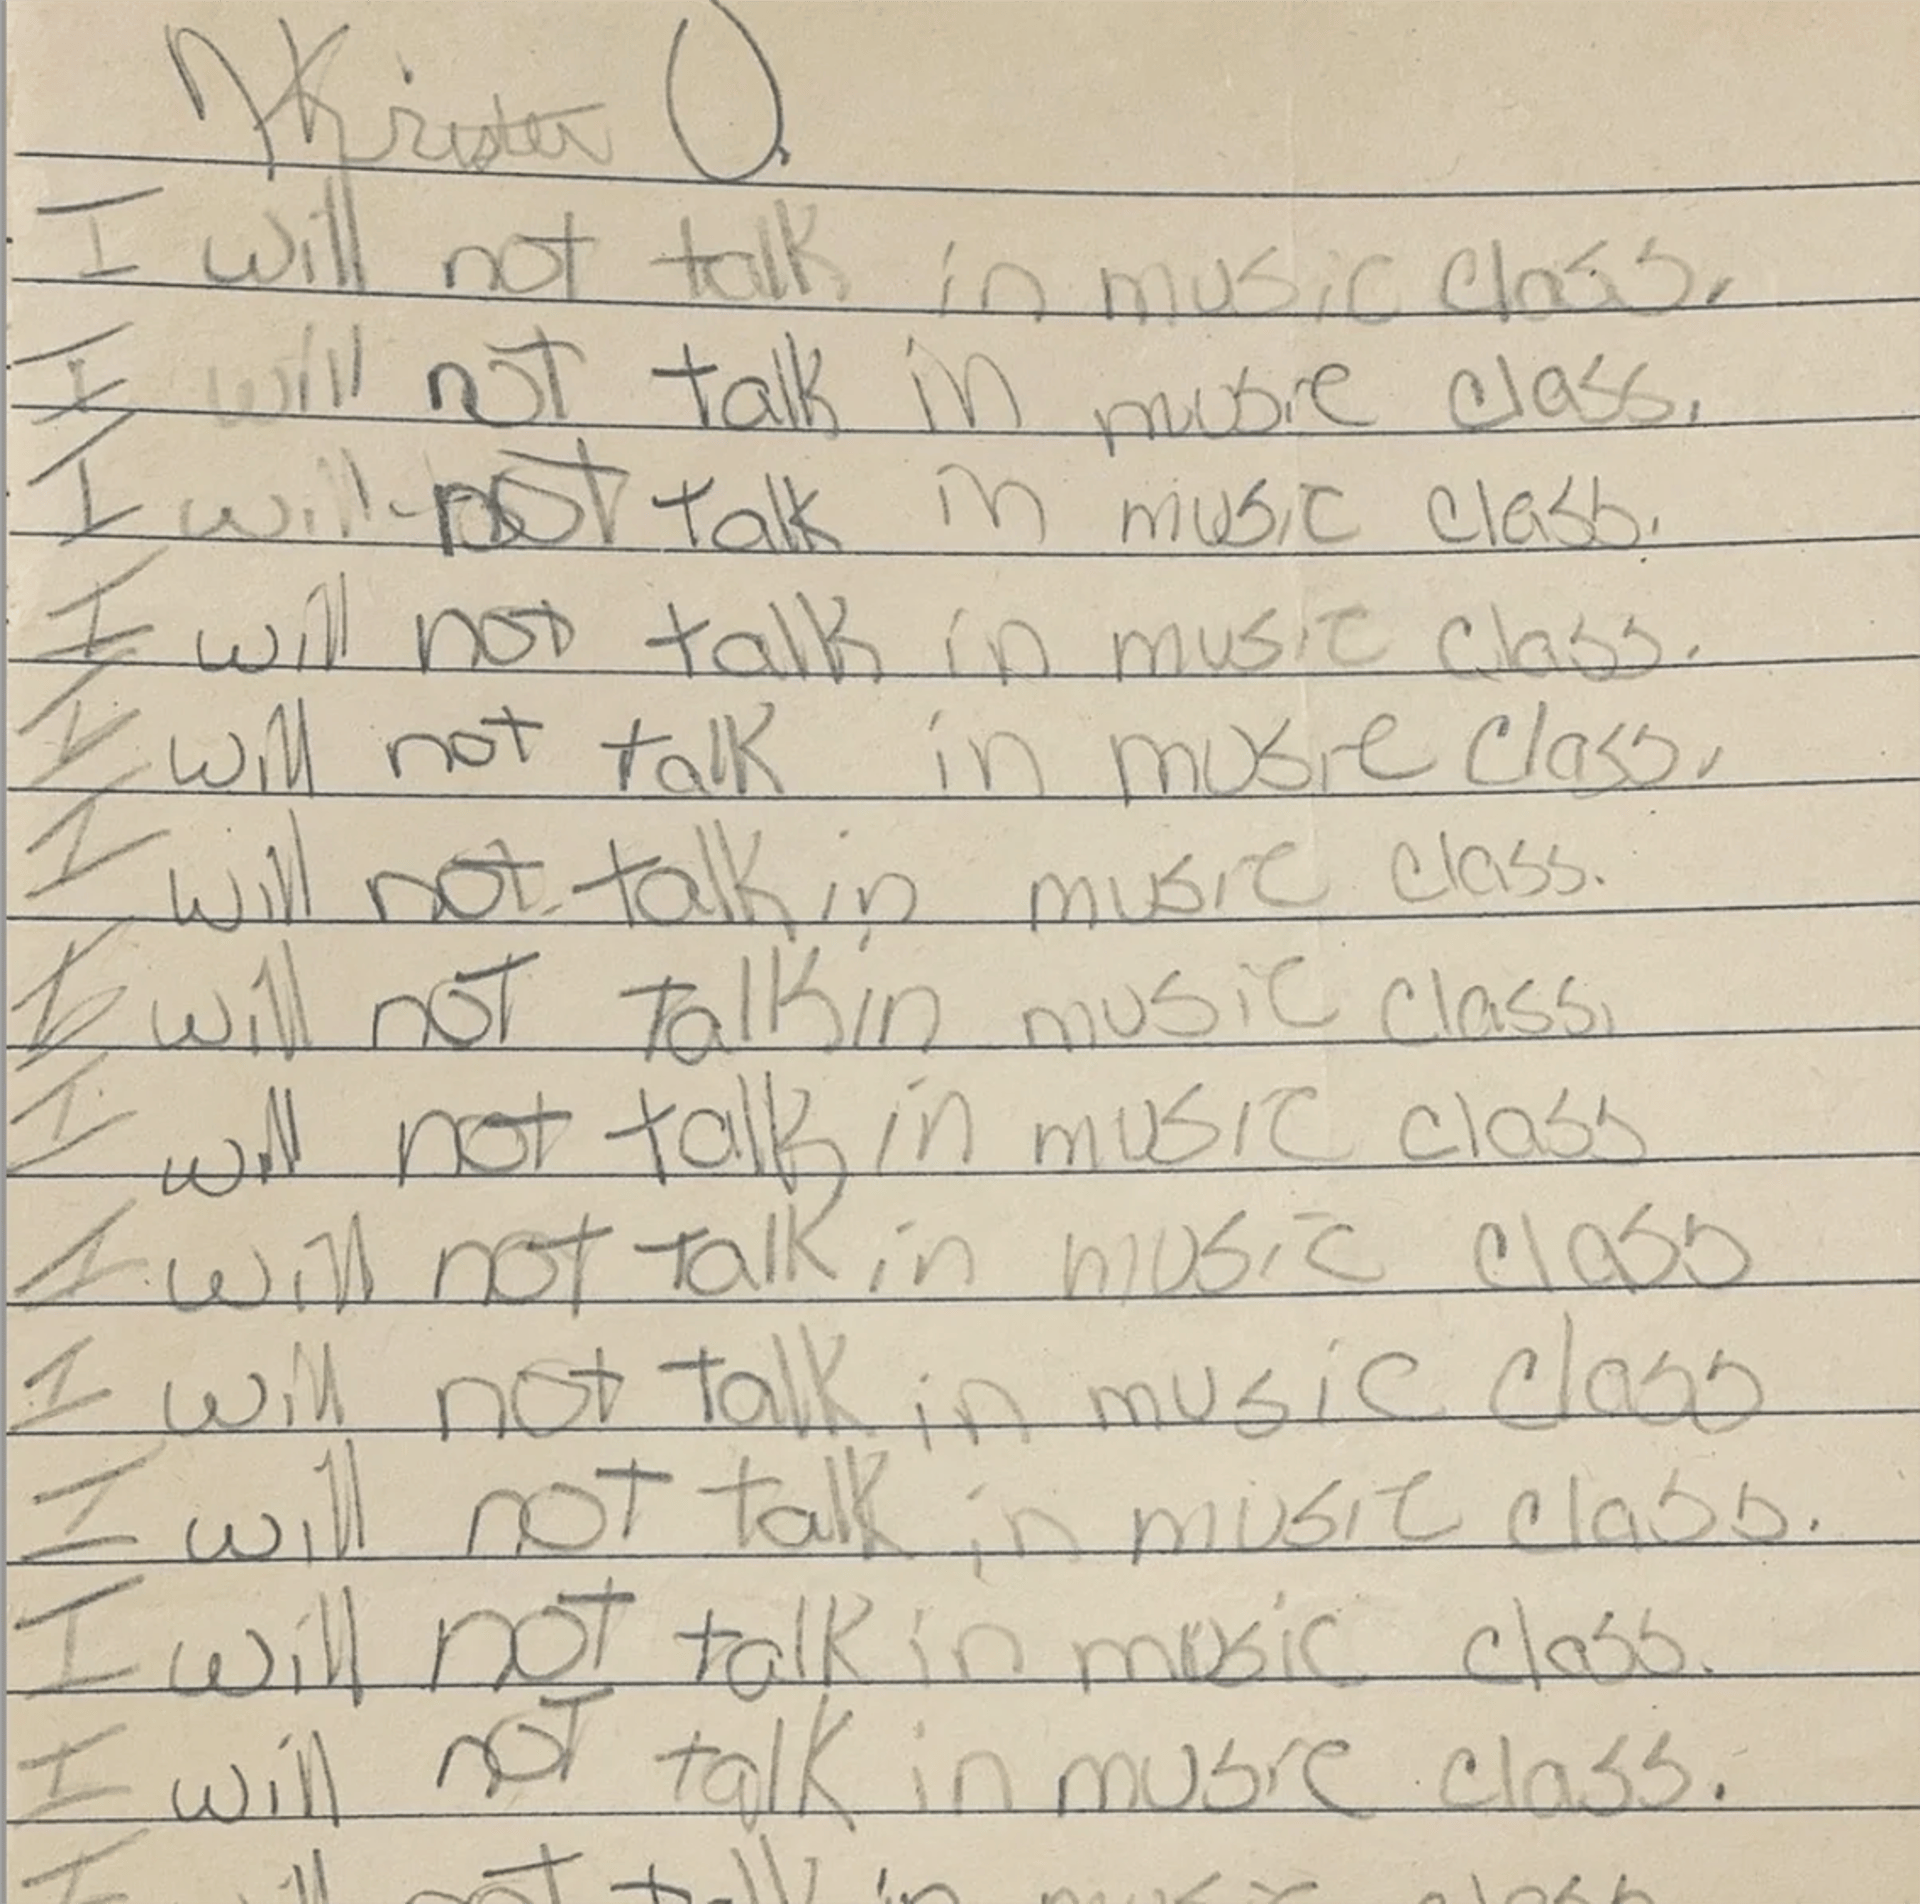 Kristen O.
I will not talk in music class.
I will not talk in music class.
I will not talk in music class.
I will not talk in music class.
I will not talk in music class.
I will not talk in music class.
I will not talk in music class.
I will not talk in music class
I will not talk in music class
I will not talk in music class
I will not talk in music class.
I will not talk in music class.
I will not talk in music class.
I will not talk in music class